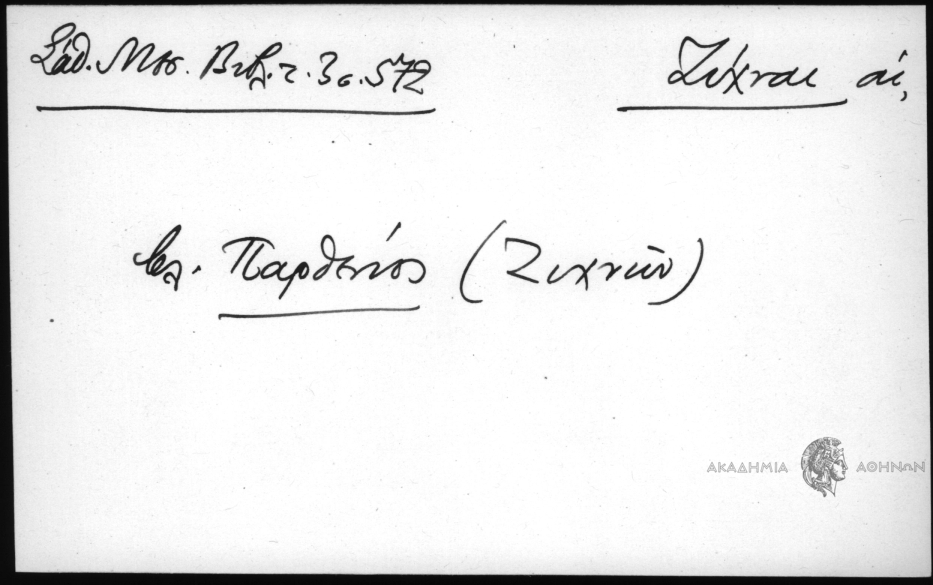 Σάθ. Μεσ. Βιβλ. τ. 3 σ. 572
Ζίχναι αἱ,
βλ. Παρθένιος (Ζιχνῶν)
ΑΚΑΔΗΜΙΑ ΑΘΗΝΩΝ